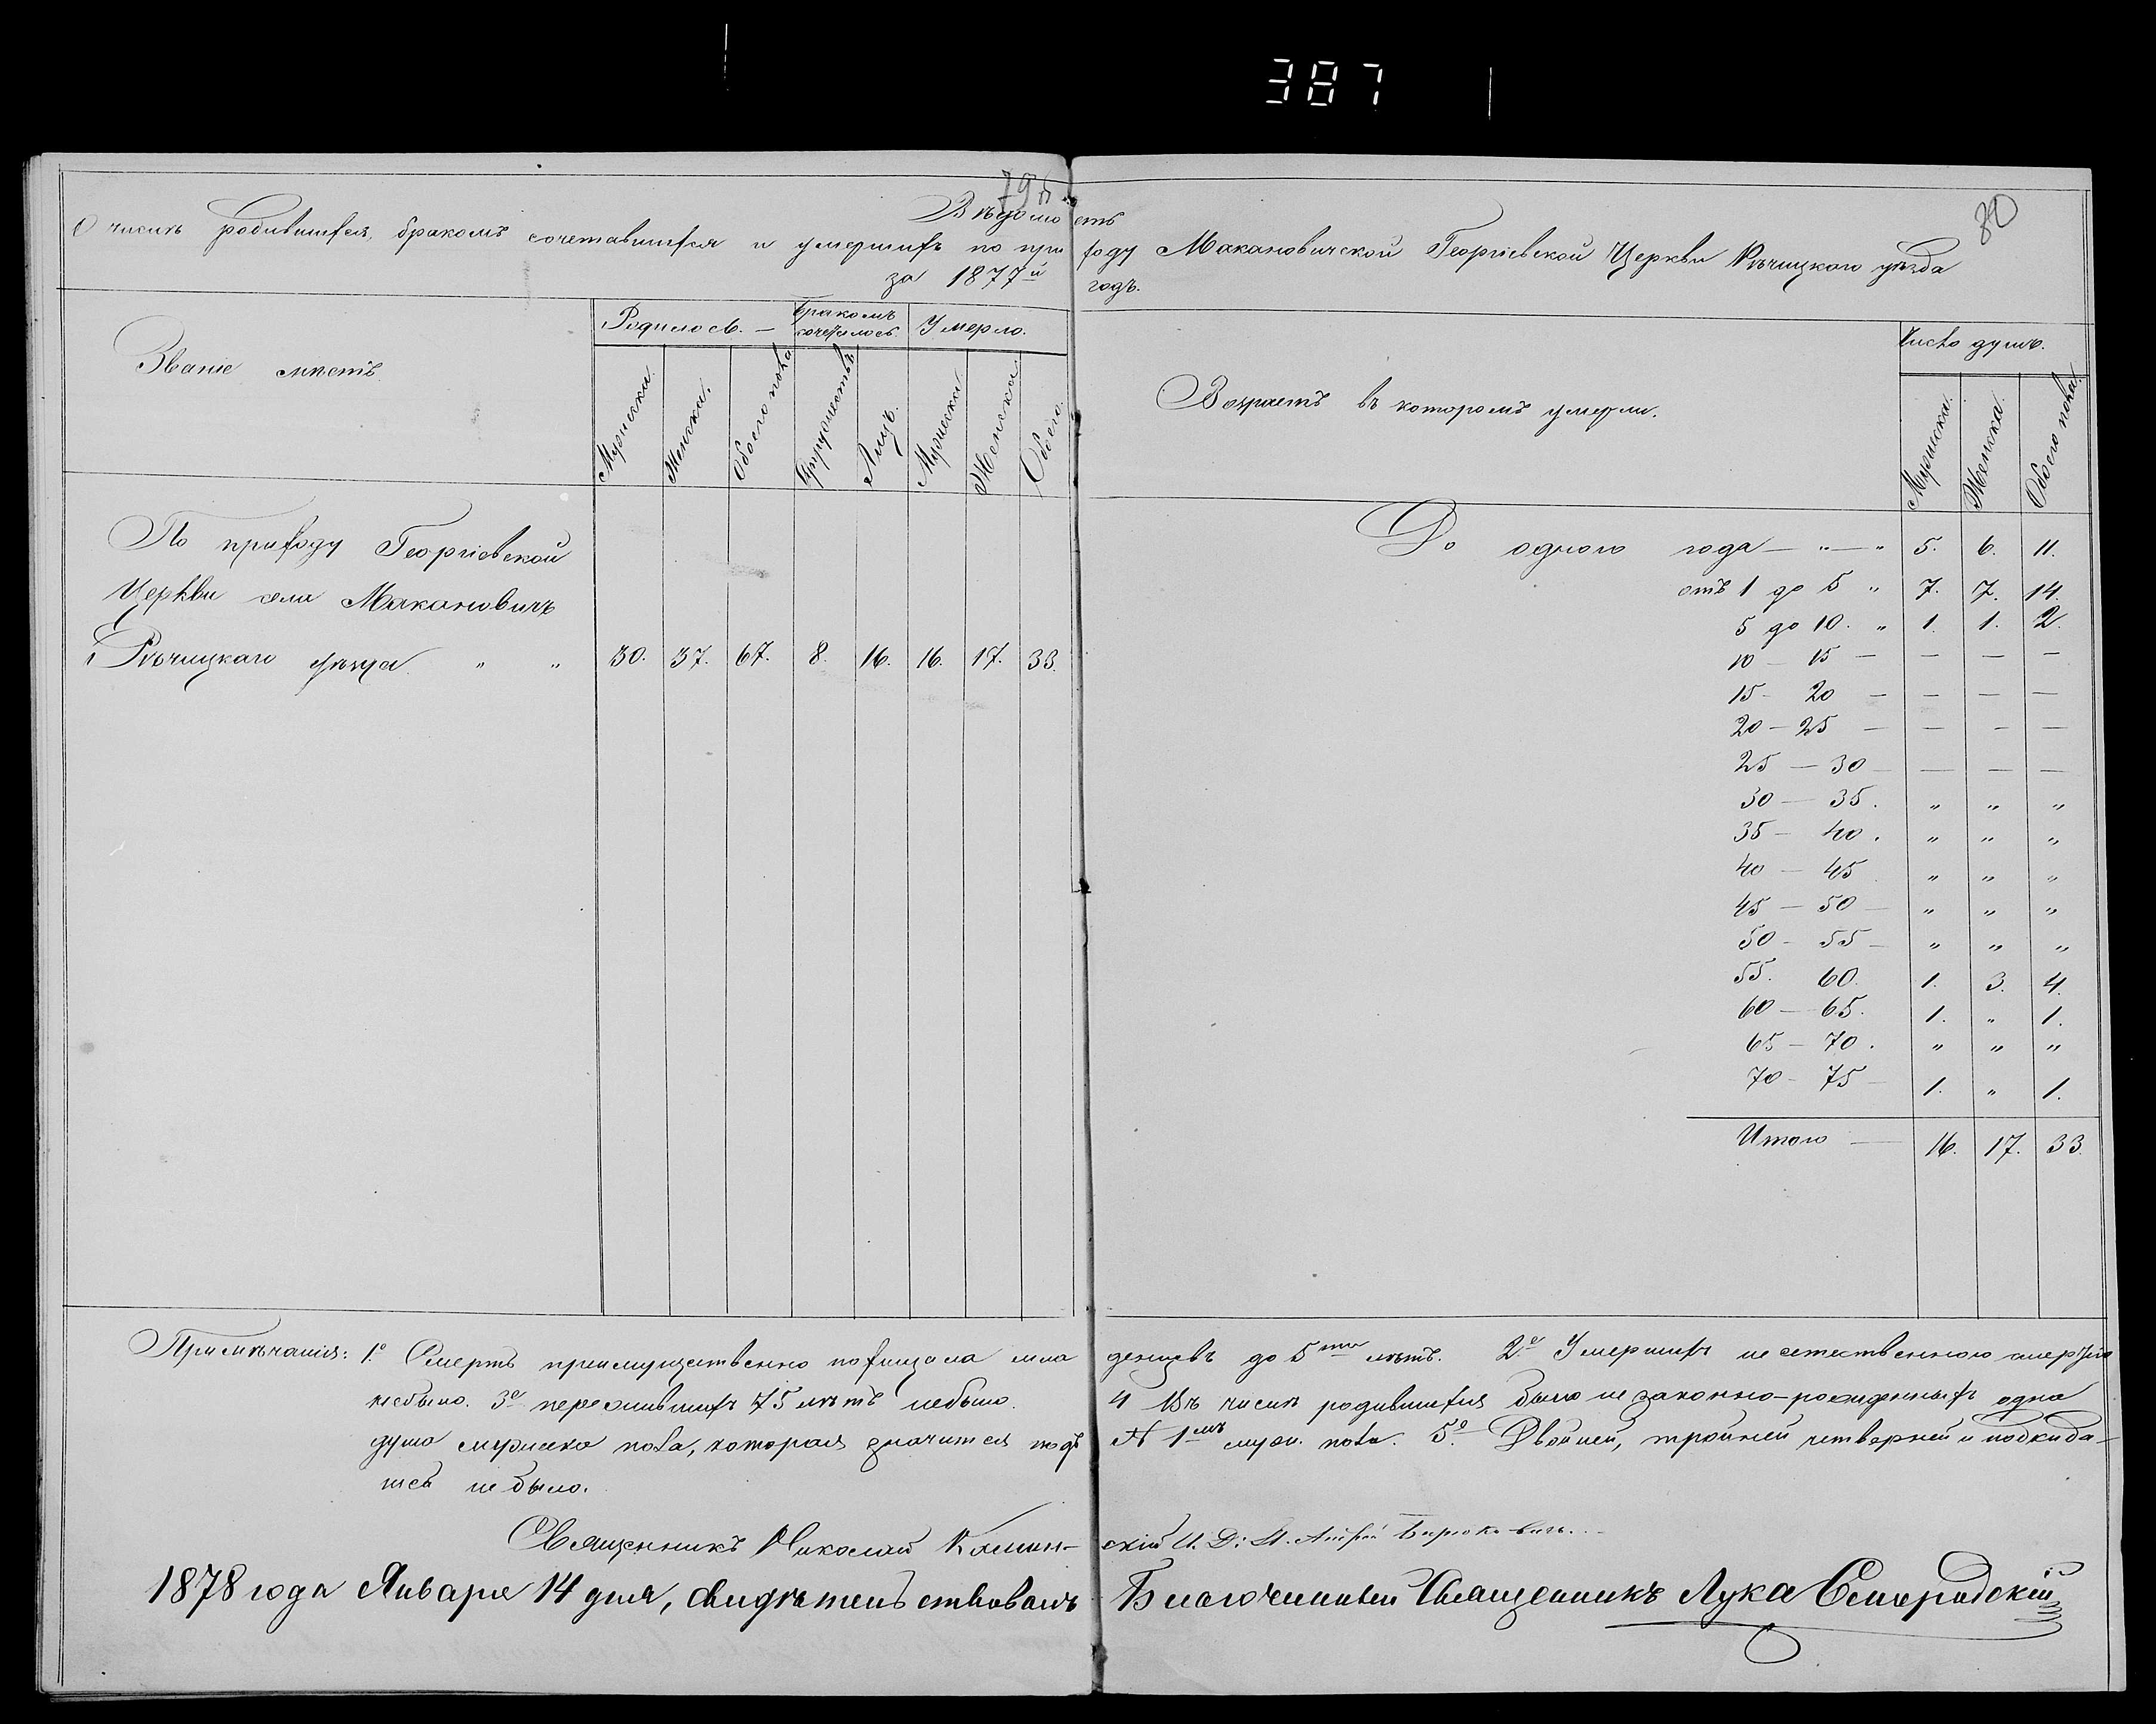 387
79 об.
80
Вѣдомость
О числѣ родившихся, бракомъ сочетавшихся и умершихъ по приходу Макановичской Георгіевской Церкви Рѣчицкаго уѣзда
за 1877й годъ.
Званіе мѣстъ
Родилось.—
Бракомъ сочеталось.
Умерло.
Мужеска.
Женска.
Обоего пола
Супружествъ
Лицъ.
Мужеска
Женска
Обоего.
По приходу Георгіевской
Церкви села Макановичъ
Рѣчицкаго уѣзда " " 30. 37. 67. 8. 16. 16. 17. 33.
Возрастъ въ которомъ умерли.
Число душъ.
Мужеска.
Женска.
Обоего пола.
До одного года — " — " 5. 6. 11.
отъ 1 до 5 " 7. 7. 14.
5 до 10. " 1. 1. 2.
10 — 15 — — — —
15 — 20 — — — —
20 — 25 — — — —
25 — 30 — — — —
30 — 35. " " "
35 — 40. " " "
40 — 45 " " "
45 — 50 — " " "
50 — 55 — " " "
55. 60. 1. 3. 4.
60 — 65. 1. " 1.
65 — 70. " " "
70 — 75 — 1. " 1.
Итого — 16. 17. 33.
Примѣчанія: 1.º Смерть преимущественно похищала младенцевъ до 5ти лѣтъ. 2.º Умершихъ не естественною смертію
небыло. 3º пережившихъ 75 лѣтъ небыло. 4 Въ числѣ родившихся было не законно-рожденныхъ одна
душа мужеска пола, которая значится подъ № 1мъ муж. пола. 5.º Двойней, тройней четверней и подкида-
шей не было.
Священникъ Николай И. Д: Андрей
1878 года Января 14 дня, свидѣтельствовалъ Благочинный Священникъ Лука